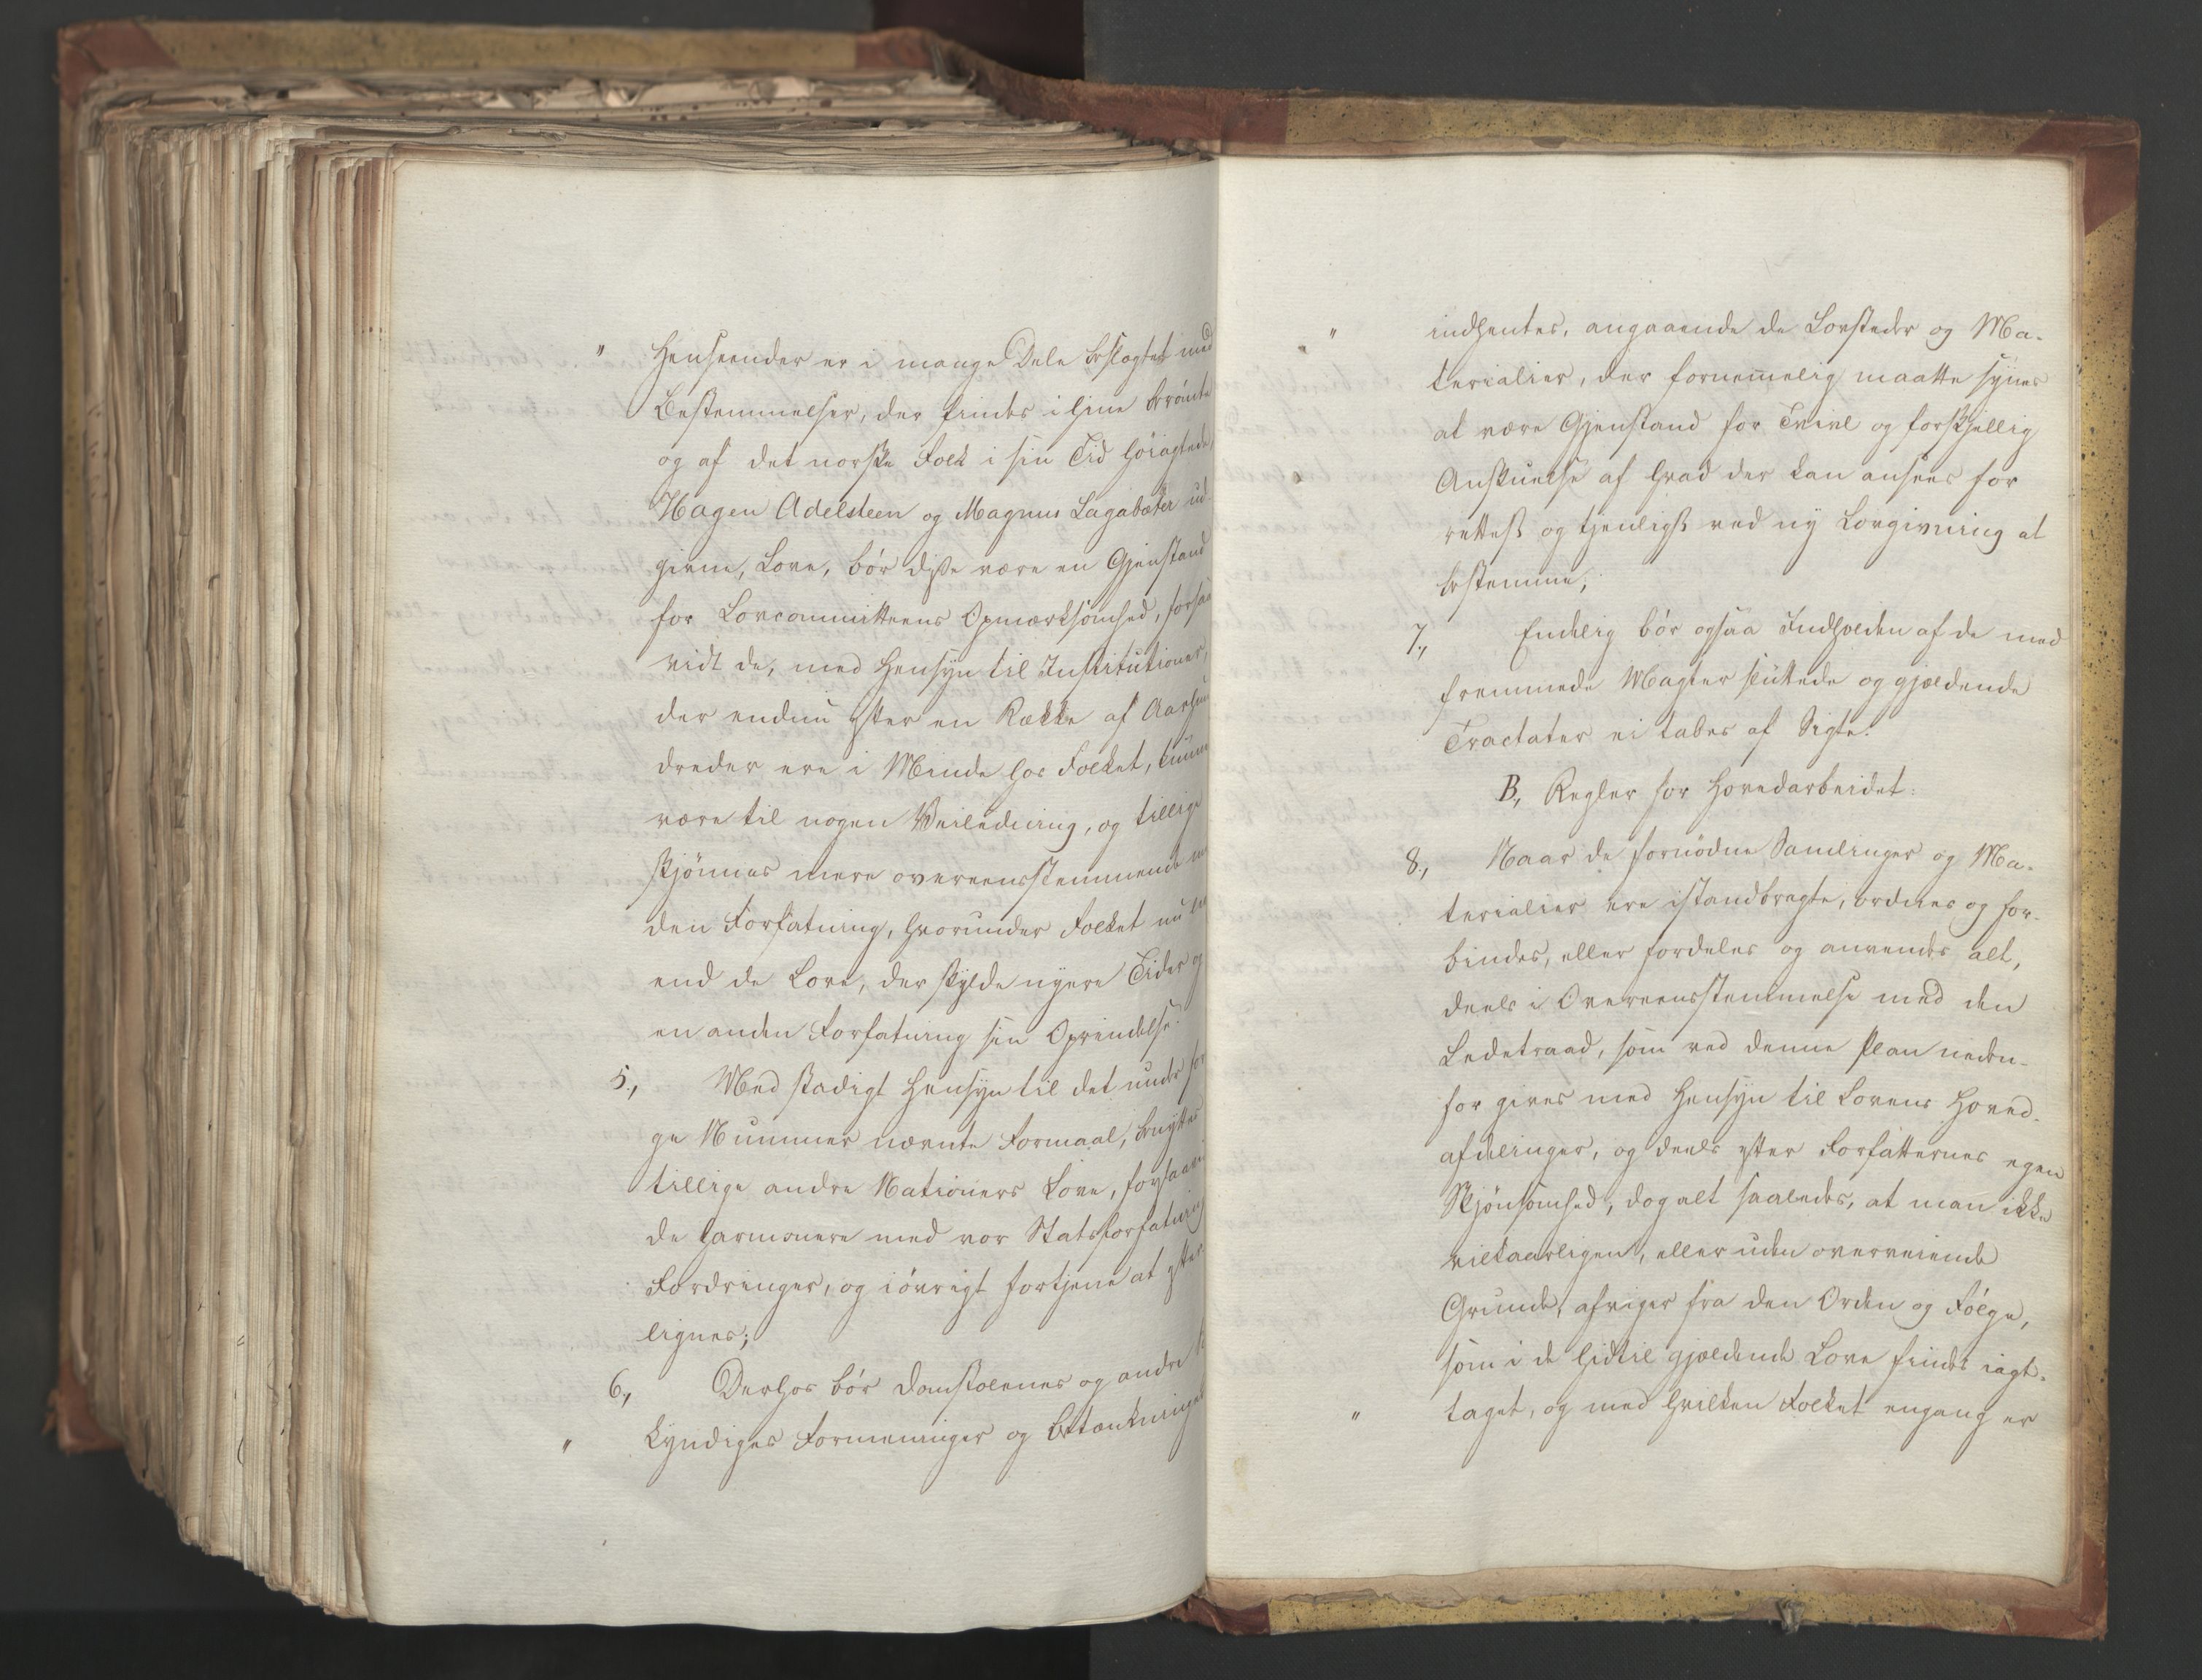 " Henseender er i mange Dele beslægtet med
Bestemmelser, der findes i hine berömte
og af det norske Folk i sin Tid höiagtede,
Hagen Adelsteen og Magnus Lagabæter ud-
givne, Love, bör disse være en Gjenstand
for Lovcommitteens Opmærksomhed, forsaa
vidt de, med Hensyn til Institutioner,
der endnu efter en Række af Aarhun
dreder ere i Minde hos Folket, kunne
være til nogen Veiledning, og tillige
skjönnes mere overeensstemmende
den Forfatning, hvorunder Folket nu
end de Love, der skylde nyere Tider og
en anden Forfatning sin Oprindelse.
5., Med stadigt Hensyn til det under for
ge Nummer nævnte Formaal, benyttes
tillige andre Nationers Love, forsaavi
de harmonere med vor Statsforfatning
Fordringer, og iövrigt fortjene at efter-
lignes;
6., Derhos bör Domstolenes og andre
" Kyndiges Formeninger og Betænkninger
" indhentes, angaaende de Lovsteder og Ma-
terialier, der fornemmelig maatte synes
at være Gjenstand for Tvivl og forskjellig
Anskuelse af hvad der kan ansees for
rettest og tjenligst ved ny Lovgivning at
bestemme;
7., Endelig bör ogsaa Indholden af de med
fremmede Magter sluttede og gjældende
Tractater ei tabes af Sigte.
B., Regler for Hovedarbeidet:
8., Naar de fornödne Samlinger og Ma-
terialier ere istandbragte, ordnes og for-
bindes, eller fordeles og anvendes alt,
deels i Overeensstemmelse med den
Ledetraad, som ved denne Plan neden-
for gives med Hensyn til Lovens Hoved-
afdelinger, og deels efter Forfatternes egen
Skjönsomhed, dog alt saaledes, at man ikke
vilkaarligen, eller uden overveiende
Grunde, afviger fra den Orden og Fölge,
som i de hidtil gjældende Love findes iagt-
" taget, og med hvilken Folket engang er